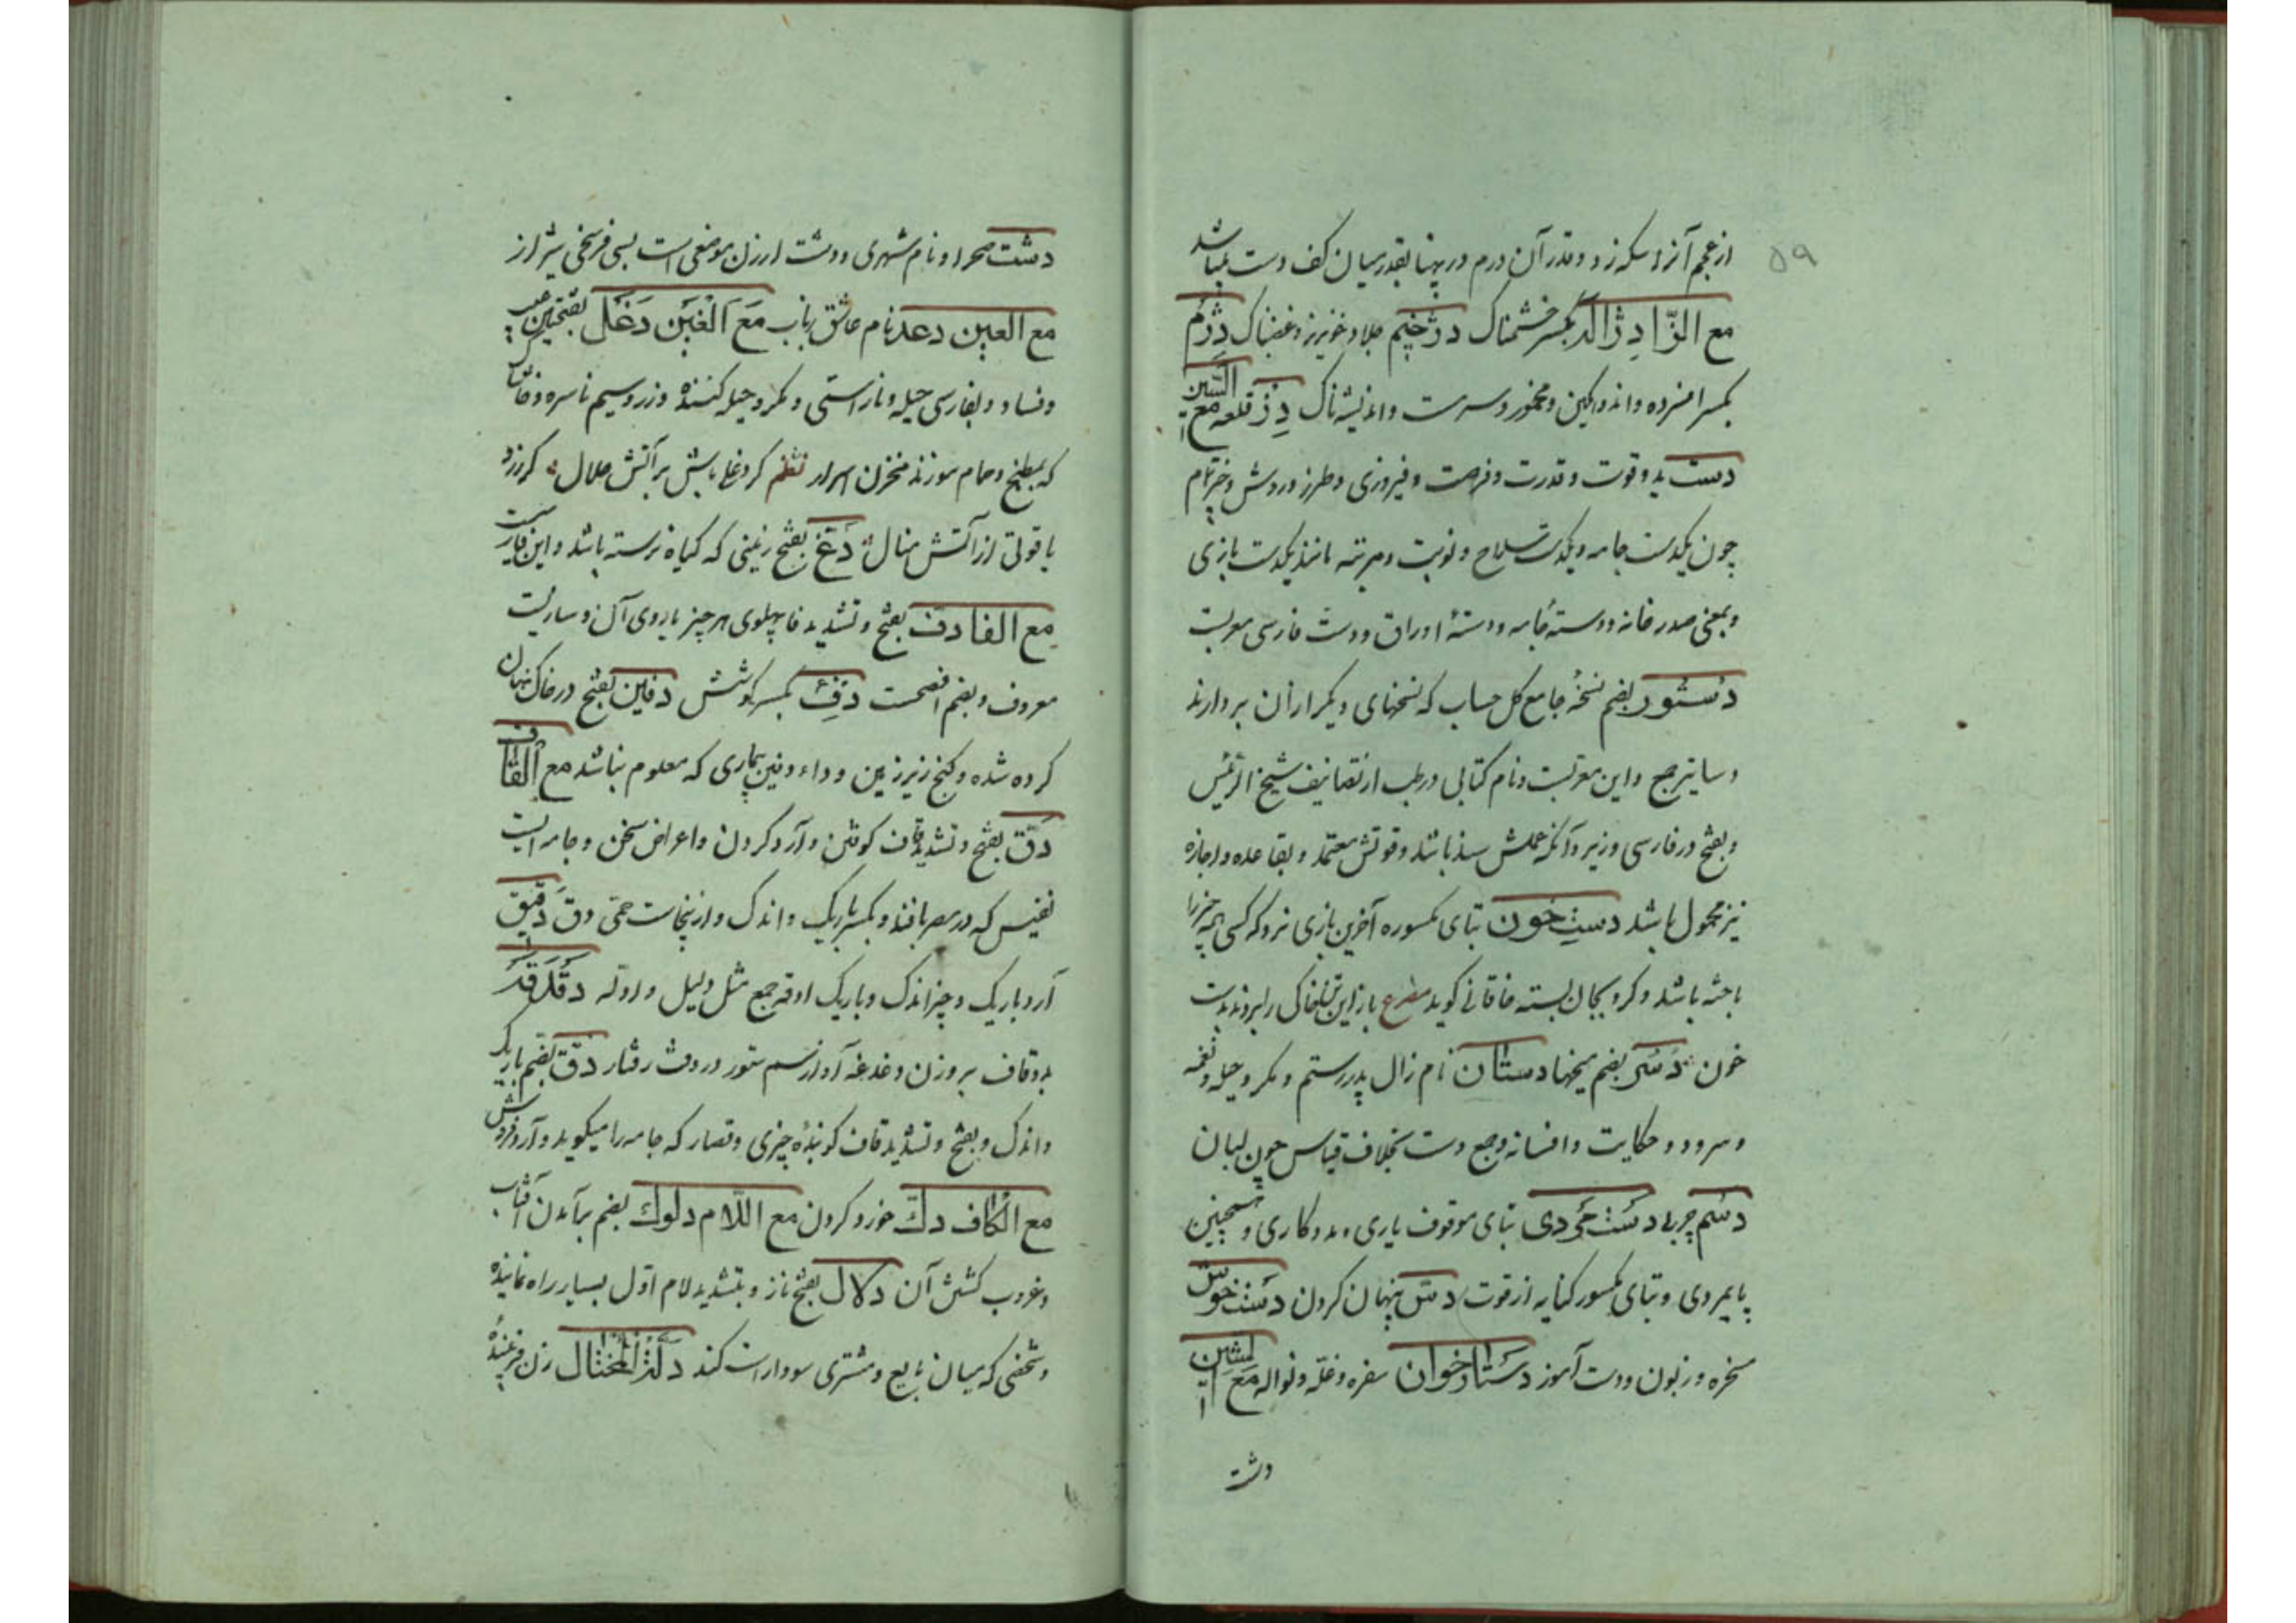 ۵۹
از عجم آنرا سکه زد و قدر آن درم در پهنا بقدر میان کف دست میباشد
مع الزا دژآلد بکسر خشمناک دژخیم جلاد و خونریز و غضبناک دژم
بکسر افسرده و اندوهگین و مخمور و سرمست و اندیشه ناک دز قلعه مع السین
دست ید و قوت و قدرت و فرصت و فیروزی و طرز و روش و چیز تمام
چون یکدست جامه و یکدست سلاح و نوبت و مرتبه مانند یکدست بازی
و بمعنی صدر خانه و دسته جامه و دستهٔ اوراق و دست فارسی معربست
دستور بضم نسخهٔ جامع کل حساب که نسخهای دیگر از آن بردارند
دساتیر جمع و این معربست و نام کتابی در طب از تصانیف شیخ الرئیس
و بفتح در فارسی وزیر و آنکه عملش سند باشد و قولش معتمد و بقاعده و اجازه
نیز محمول باشد دست خون بتای مکسوره آخرین بازی نرد که کسی همه چیز را
باخته باشد و گرو بجان بسته خاقانی گوید مصراع بازاین تن خاکی را بردند بدست
خون دسر بضم میخها دستان نام زال پدر رستم و مکر و حیله و نغمه
و سرود و حکایت و افسانه و جمع دست بخلاف قیاس چون لبان
دسم چربی دست مردی بتای موقوف یاری و مددکاری و همچنین
پایمردی و بتای مکسور کنایه از قوت دس پنهان کردن دستخوش
سخره و زبون و دست آموز دستارخوان سفره و غله و نواله مع الشین
دشت
دشت صحرا و نام شهری و دشت ارزن موضعی است بسی فرسخی شیراز
مع العین دعد نام عاشق رباب مع الغین دغل بفتحین عیب
و فساد و بفارسی حیله و ناراستی و مکر و حیله کننده و زر و سیم ناسره و خاشاک
که بمطبخ و حمام سوزند مخزن اسرار نظم کر دغا باش بر آتش حلال کر زد
یاقوتی از آتش منال دغ بفتح زمینی که گیاه نرسته باشد و این فارسیست
مع الفا دف بفتح و تشدید فا پهلوی هر چیز یا روی آن و سازیست
معروف و بضم افصحت دفء بکسر پوشش دفین بفتح در خاک نهان
کرده شده و گنج زیر زمین و داء دفین بیماری که معلوم نباشد مع القاف
دق بفتح و تشدید قاف کوفتن و آرد کردن و اعراض سخن و جامه ایست
نفیس که در مصر بافند و بکسر باریک و اندک و ازینجاست حمی دق دقیق
آرد باریک و چیز اندک و باریک ادقه جمع مثل دلیل و ادله دقدقه
بدو قاف بروزن دغدغه آواز سم ستور در وقت رفتار دقق بضم باریک
و اندک و بفتح و تشدید قاف کوبندهٔ چیزی و قصار که جامه را میکوبد و آردفروش
مع الکاف دک خورد کردن مع اللام دلوک بضم برآمدن آفتاب
و غروب گشتن آن دلال بفتح ناز و بتشدید لام اول بسیار راه نماینده
و شخصی که میان بایع و مشتری سودا راست کند دلة المختال زن فریبندهٔ